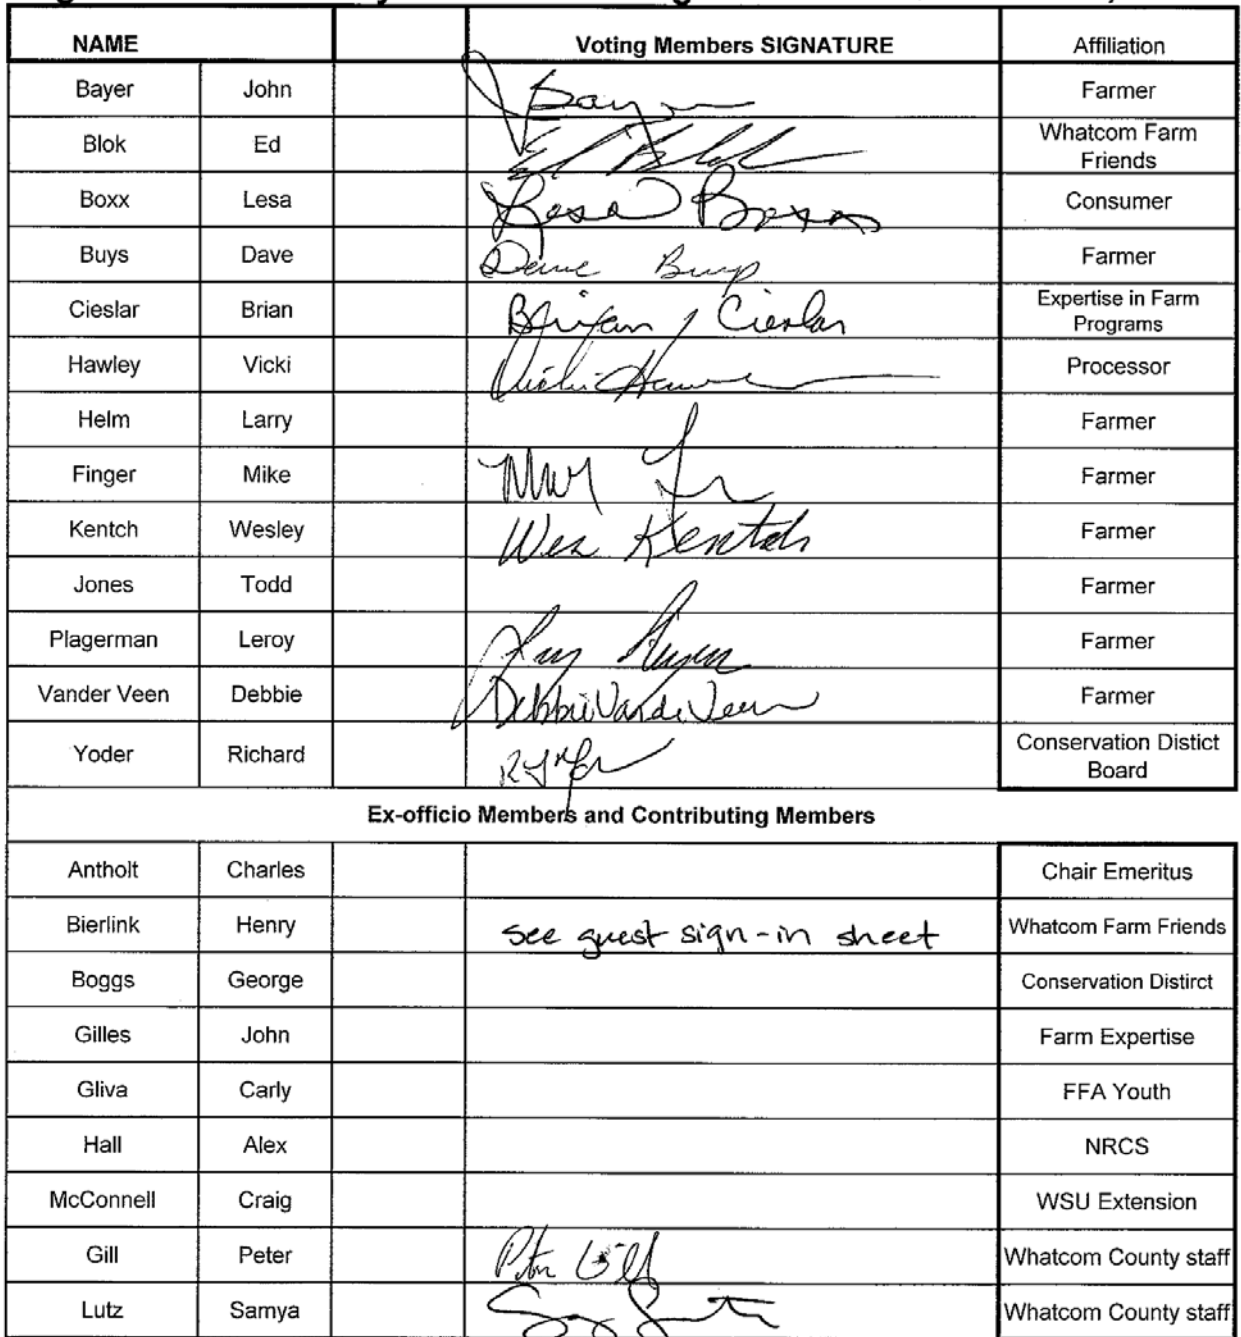 NAME Voting Members SIGNATURE Affiliation
Bayer John Bayer Farmer
Blok Ed Ed Blok Whatcom Farm Friends
Boxx Lesa Lesa Boxx Consumer
Buys Dave Dave Buys Farmer
Cieslar Brian Brian Cieslar Expertise in Farm Programs
Hawley Vicki Vicki Farmer Processor
Helm Larry Farmer
Finger Mike Farmer
Kentch Wesley Wes Kentch Farmer
Jones Todd Farmer
Plagerman Leroy Farmer
Vander Veen Debbie Debbie VanderVeen Farmer
Yoder Richard Conservation Distict Board
Ex-officio Members and Contributing Members
Antholt Charles Chair Emeritus
Bierlink Henry see guest sign-in sheet Whatcom Farm Friends
Boggs George Conservation Distirct
Gilles John Farm Expertise
Gliva Carly FFA Youth
Hall Alex NRCS
McConnell Craig WSU Extension
Gill Peter Peter Gill Whatcom County staff
Lutz Samya Whatcom County staff